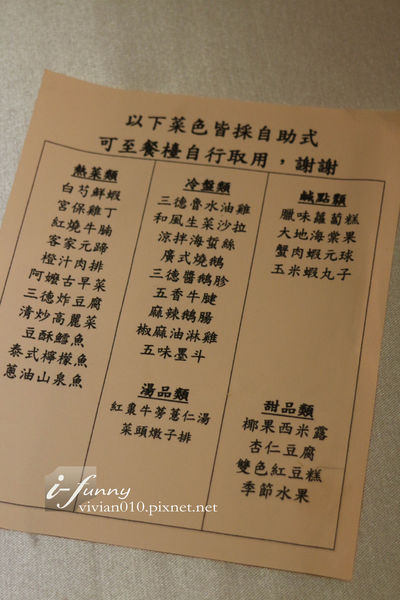 以下菜色皆採自助式
可至餐檯自行取用，謝謝
熱菜類
白芍鮮蝦
宮保雞丁
紅燒牛腩
客家元蹄
橙汁肉排
阿嬤古早菜
三德炸豆腐
清炒高麗菜
豆酥鱈魚
泰式檸檬魚
蔥油山泉魚
冷盤類
三德魯水油雞
和風生菜沙拉
涼拌海蜇絲
廣式燒鵝
三德醬鵝胗
五香牛腱
麻辣鵝腸
椒麻油淋雞
五味墨斗
湯品類
紅棗牛蒡薏仁湯
菜頭燉子排
鹹點類
臘味蘿蔔糕
大地海棠果
蟹肉蝦元球
玉米蝦丸子
甜品類
椰果西米露
杏仁豆腐
雙色紅豆糕
季節水果
i-funny
vivian010.pixnet.net